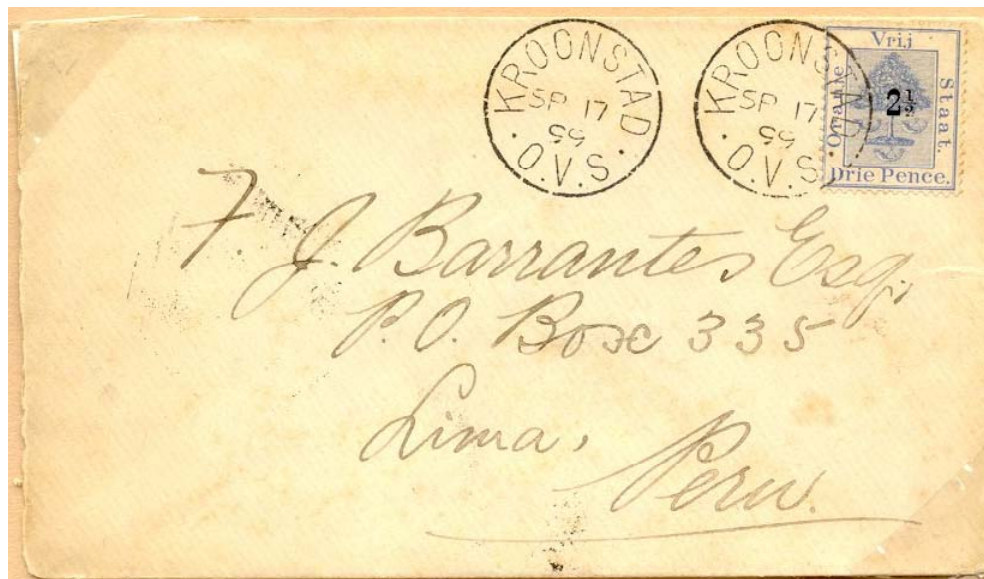 KROONSTAD
SP 17
O.V.S.
KROONSTAD
SP 17
O.V.S.
Oranje Vrij Staat.
2½
Drie Pence.
F. J. Barrantes Esq.,
P.O. Box 335
Lima,
Peru.